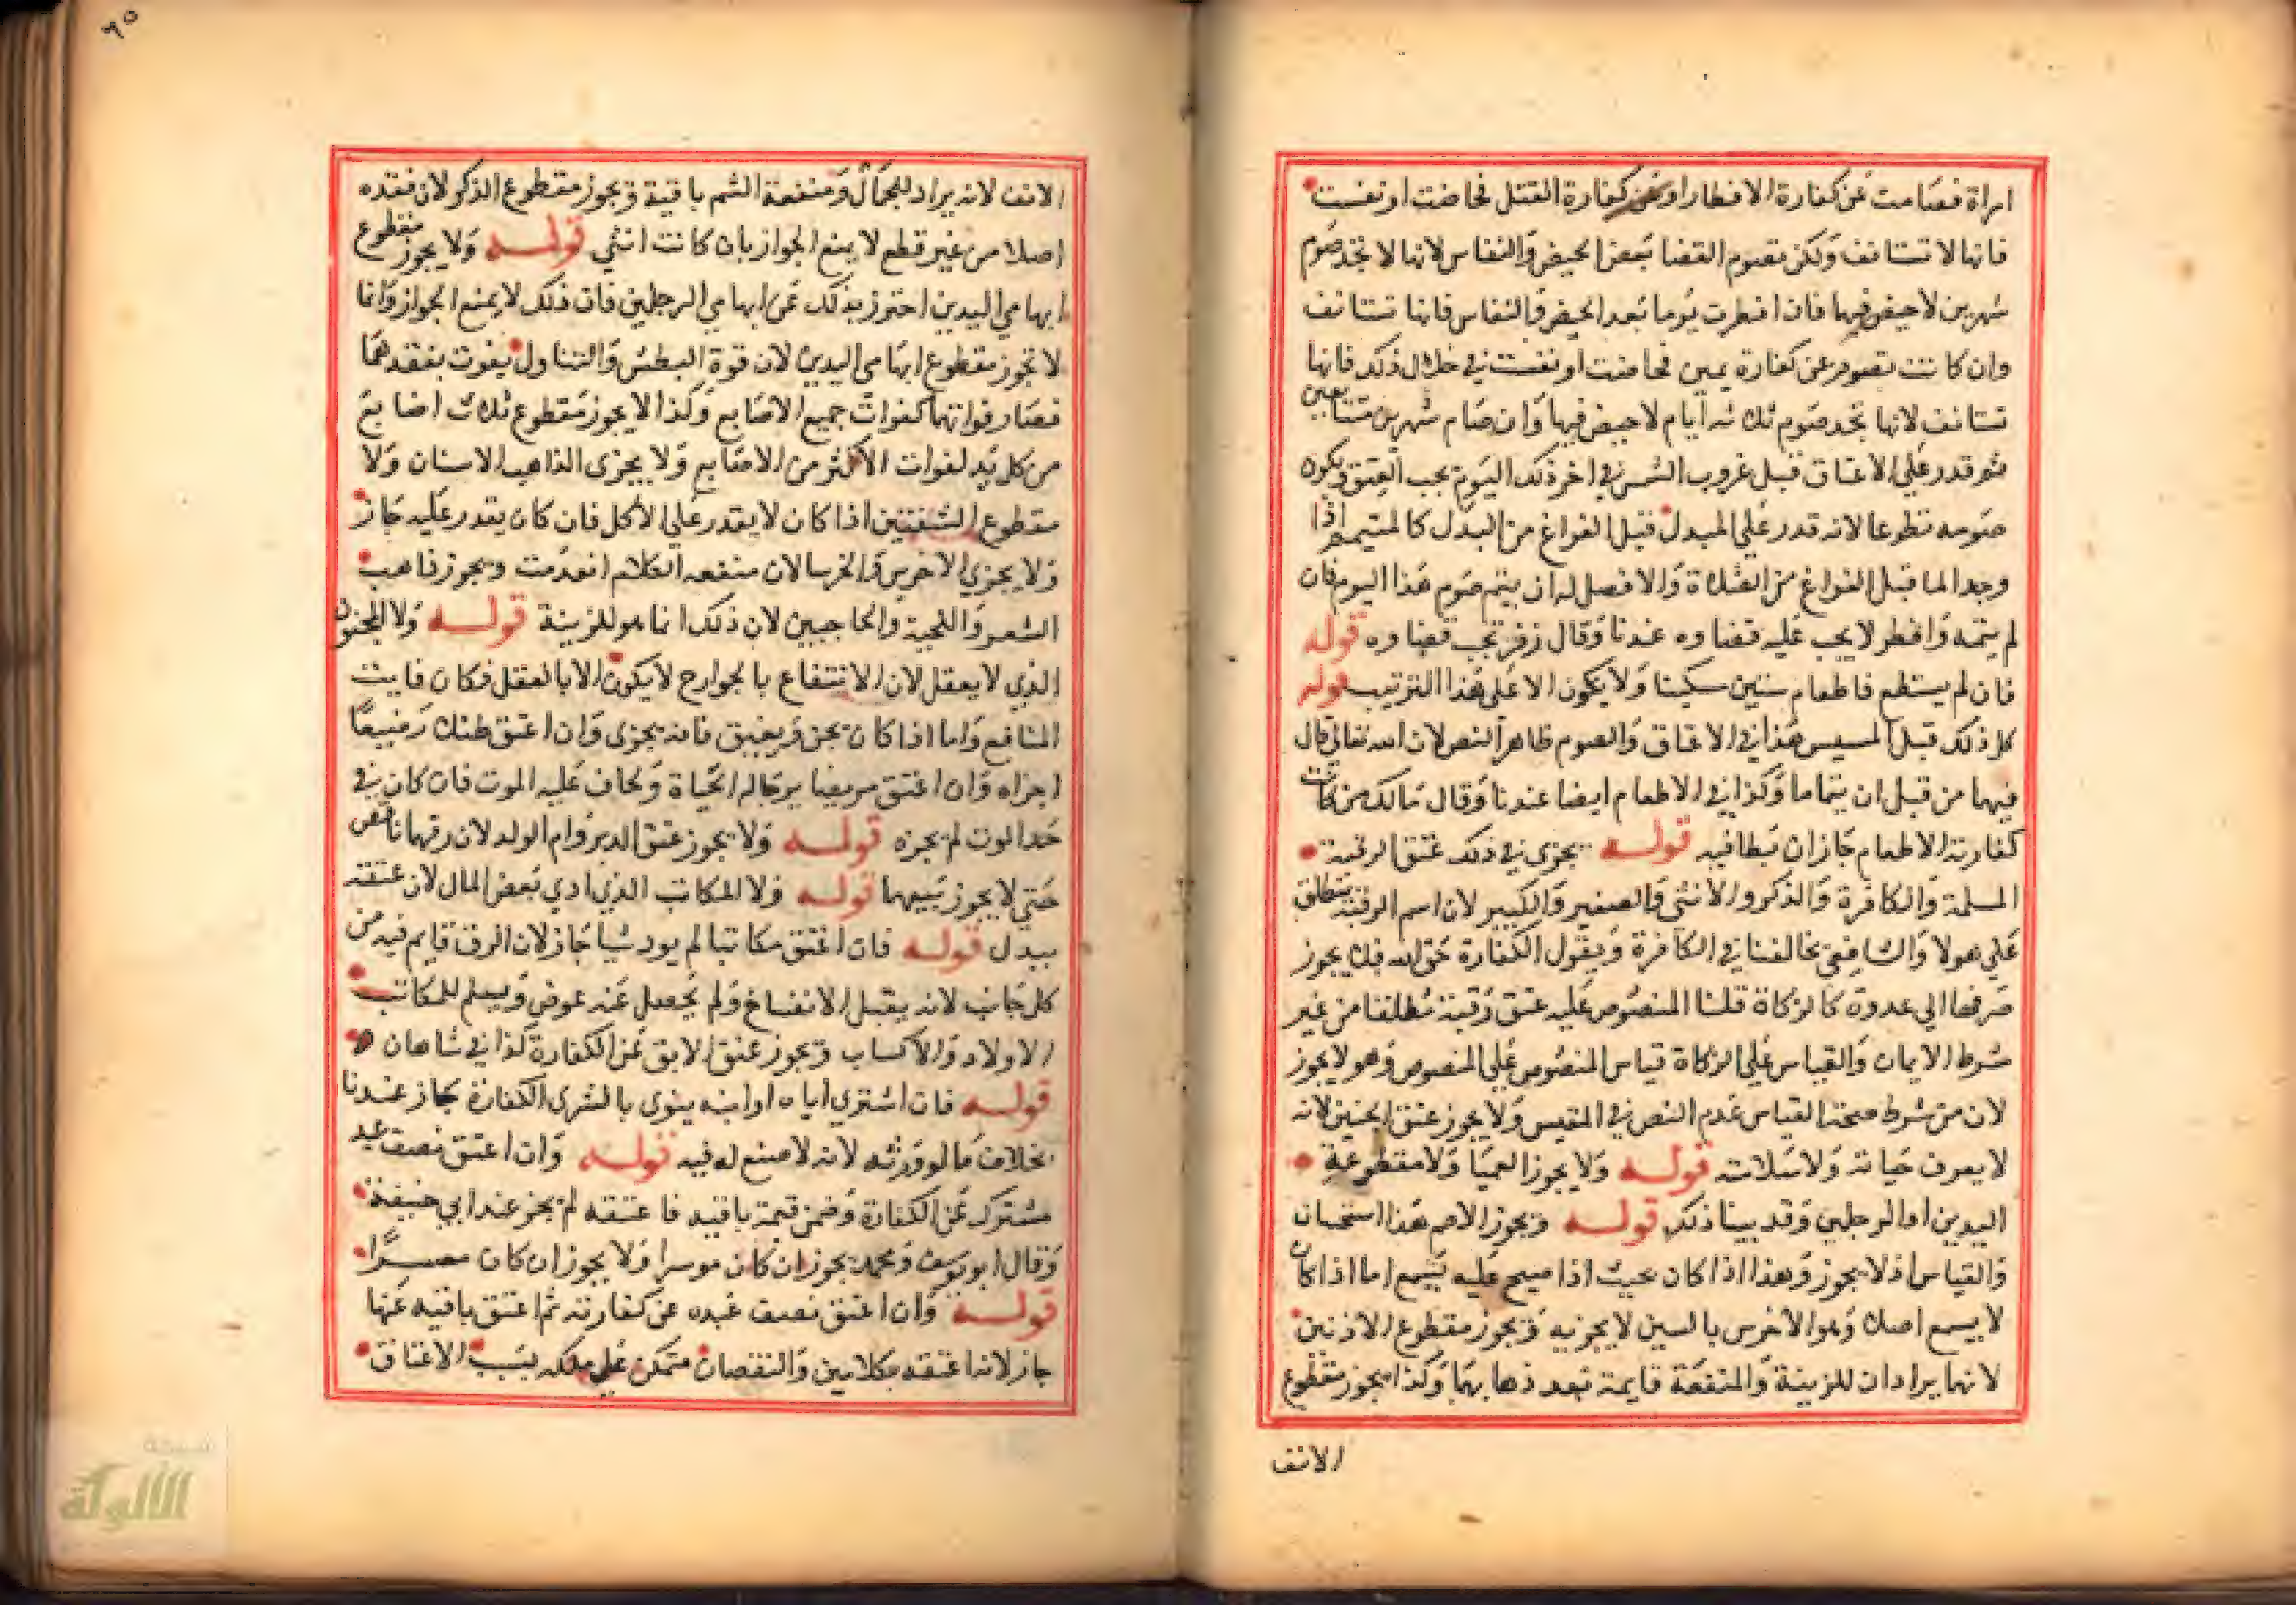 امراة فصامت عن كفارة الافطار او عن كفارة القتل فحاضت او نفست
فانها لا تستانف ولكن تصوم القضا بعد الحيض والنفاس لانها لا تجد صوم
شهرين لا حيض فيها فان افطرت يوما بعد الحيض والنفاس فانها تستانف
وان كانت تصوم عن كفارة يمين فحاضت او نفست في خلال ذلك فانها
تستانف لانها تجد صوم ثلاثه ايام لا حيض فيها وان صام شهرين متتابعين
ثم قدر على الاعتاق قبل غروب الشمس في اخر ذلك اليوم يجب العتق ويكون
صومه تطوعا لانه قدر على المبدل قبل الفراغ من البدل كالمتيمم اذا
وجد الما قبل الفراغ من الصلاة والافضل له ان يتم صوم هذا اليوم فان
لم يتمه وافطر لا يجب عليه قضاوه عندنا وقال زفر تجب قضاوه قوله
فان لم يستطع فاطعام ستين مسكينا ولا يكون الا على هذا الترتيب قوله
كل ذلك قبل المسيس هذا في الاعتاق والصوم ظاهر النص لان الله تعالى قال
فيهما من قبل ان يتماسا وكذا في الاطعام ايضا عندنا وقال مالك من كانت
كفارته الاطعام جاز ان يطا فيه قوله يجزى في ذلك عتق الرقبة
المسلمة والكافرة والذكر والانثى والصغير والكبير لان اسم الرقبة ينطلق
على هولا والشافعي يخالفنا في الكافرة ويقول الكفارة حق الله فلا يجوز
صرفها الى عدوه كالزكاة قلنا المنصوص عليه عتق رقبة مطلقا من غير
شرط الايمان والقياس على الزكاة قياس المنصوص على المنصوص وهو لا يجوز
لان من شرط صحة القياس عدم النص في المقيس ولا يجوز عتق الجنين لانه
لا يعرف حياته ولا سلامته قوله ولا يجوز العميا ولا مقطوعة
اليدين او الرجلين وقد بينا ذلك قوله ويجوز الاصم هذا استحسان
والقياس ان لا يجوز وهذا اذا كان بحيث اذا صيح عليه يسمع اما اذا كان
لا يسمع اصلا وهو الاخرس بالسين لا يجزيه ويجوز مقطوع الاذنين
لانهما يرادان للزينة والمنفعة قايمة بعد ذهابهما وكذا يجوز مقطوع
الانف
٩٥
الانف لانه يراد للجمال ومنفعة الشم باقية ويجوز مقطوع الذكر لان فقده
اصلا من غير قطع لا يمنع الجواز بان كانت انثى قوله ولا يجوز مقطوع
ابهامي اليدين احترز بذلك عن ابهامي الرجلين فان ذلك لا يمنع الجواز وانما
لا تجوز مقطوع ابهامي اليدين لان قوة البطش والتناول يفوت بفقدهما
فصار فواتهما كفوات جميع الاصابع وكذا لا يجوز مقطوع ثلاث اصابع
من كل يد لفوات الاكثر من الاصابع ولا يجزى الذاهب الاسنان ولا
مقطوع الشفتين اذا كان لا يقدر على الاكل فان كان يقدر عليه جاز
ولا يجزي الاخرس والخرسا لان منفعه الكلام انعدمت ويجوز ذاهب
الشعر واللحية والحاجبين لان ذلك انما هو للزينة قوله ولا المجنون
الذي لا يعقل لان الانتفاع بالجوارح لا يكون الا بالعقل فكان فايت
المنافع واما اذا كان يجن ويفيق فانه يجزى وان اعتق طفلا رضيعا
اجزاه وان اعتق مريضا يرجا له الحياة ويخاف عليه الموت فان كان في
حد الموت لم يجزه قوله ولا يجوز عتق المدبر وام الولد لان رقهما ناقص
حتي لا يجوز بيعهما قوله ولا المكاتب الذي ادي بعض المال لان عتقه
ببدل قوله فان اعتق مكاتبا لم يود شيا جاز لان الرق قايم فيه من
كل جانب لانه يقبل الانفساخ ولم يجعل عنه عوض ويسلم للمكاتب
الاولاد والاكساب ويجوز عتق الابق عن الكفارة كذا في شاهان
قوله فان اشترى اباه او ابنه ينوى بالشرى الكفارة جاز عندنا
بخلاف ما لو ورثه لانه لا صنع له فيه قوله وان اعتق نصف عبد
مشترك عن الكفارة وضمن قيمة باقيه فاعتقه لم يجز عند ابي حنيفة
وقال ابو يوسف ومحمد يجوز ان كان موسرا ولا يجوز ان كان معسرا
قوله وان اعتق نصف عبده عن كفارته ثم اعتق باقيه عنها
جاز لانه اعتقه بكلامين والنقصان متمكن على ملكه بسبب الاعتاق
شبكة
الألوكة